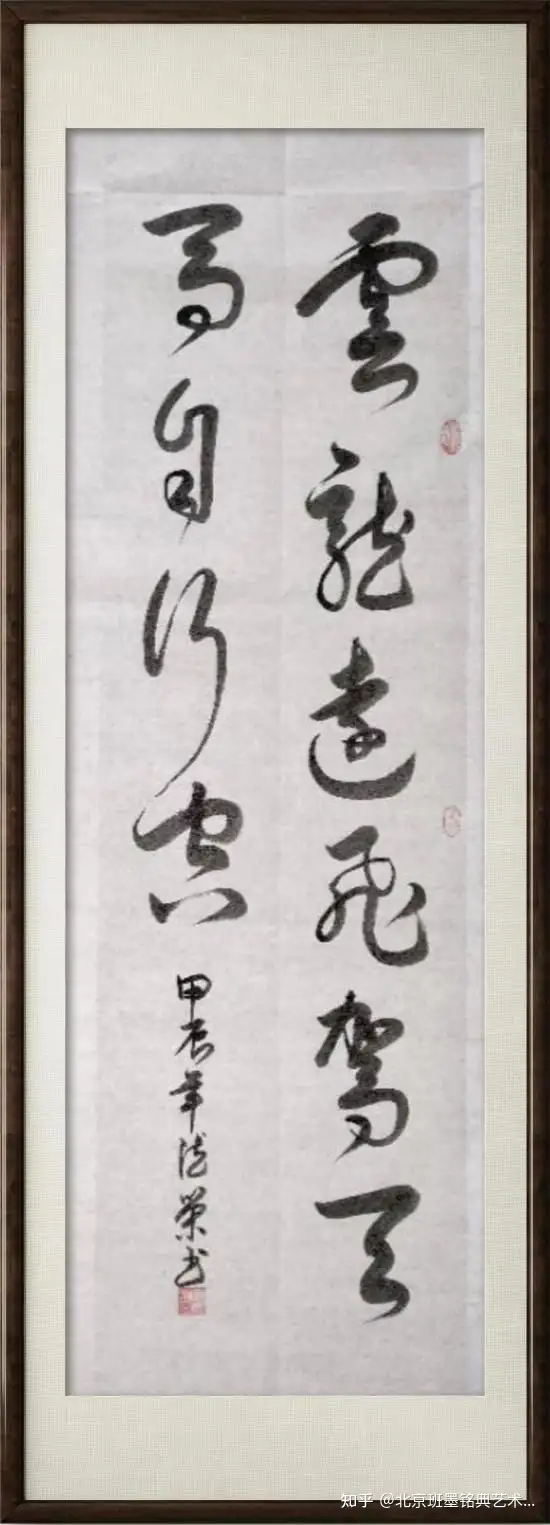 雲龍遠飛駕天
馬自行空
甲辰年德榮书
知乎 @北京班墨铭典艺术...